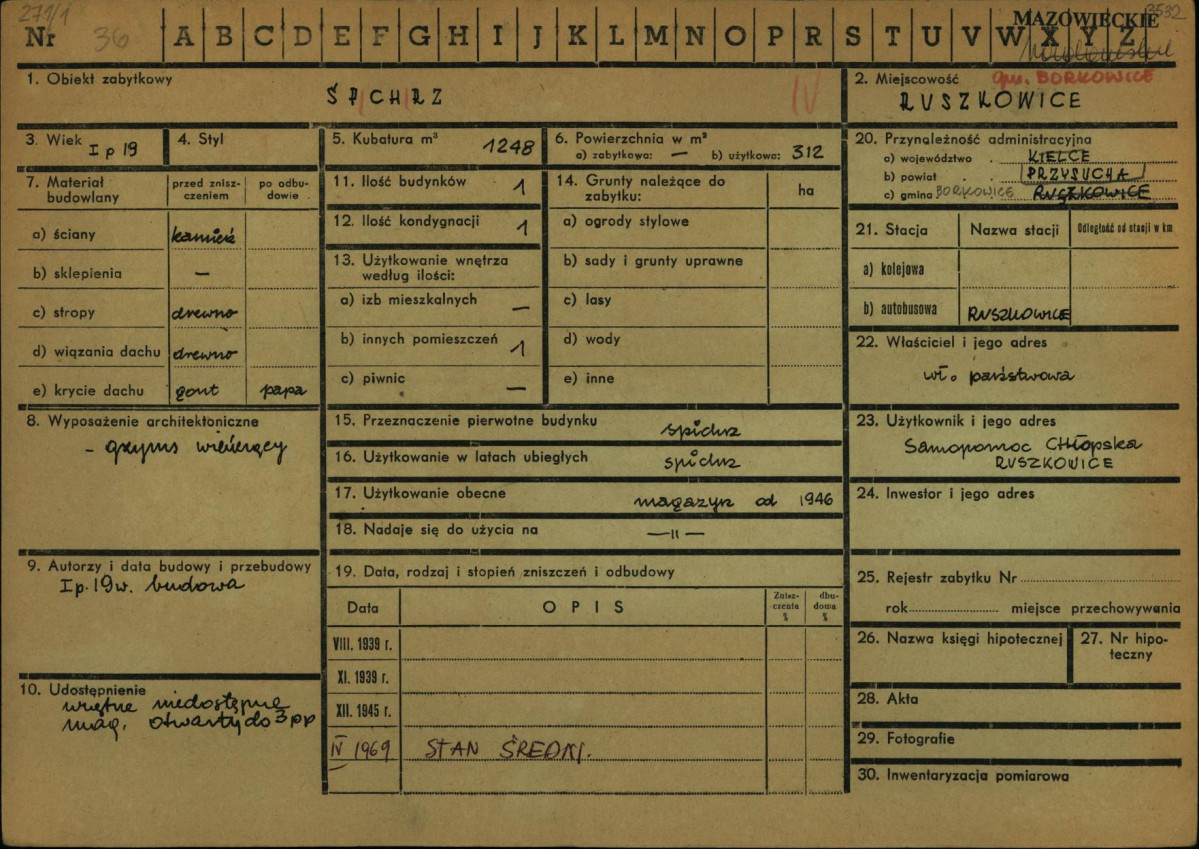 271/1
3532
Nr 36
A B C D E F G H I J K L M N O P R S T U V W X Y Z
MAZOWIECKIE
1. Obiekt zabytkowy
SPICHRZ
IV
2. Miejscowość gm. BORKOWICE
RUSZKOWICE
3. Wiek I p 19
4. Styl
5. Kubatura m³ 1248
6. Powierzchnia w m²
a) zabytkowa: — b) użytkowa: 312
20. Przynależność administracyjna
a) województwo KIELCE
b) powiat PRZYSUCHA
c) gmina BORKOWICE RUSZKOWICE
7. Materiał budowlany
przed znisz-
czeniem
po odbu-
dowie
a) ściany kamień
b) sklepienia —
c) stropy drewno
d) wiązania dachu drewno
e) krycie dachu gont papa
11. Ilość budynków 1
12. Ilość kondygnacji 1
13. Użytkowanie wnętrza
według ilości:
a) izb mieszkalnych —
b) innych pomieszczeń 1
c) piwnic —
14. Grunty należące do
zabytku:
ha
a) ogrody stylowe
b) sady i grunty uprawne
c) lasy
d) wody
e) inne
21. Stacja
Nazwa stacji
Odległość od stacji w km
a) kolejowa
b) autobusowa RUSZKOWICE
22. Właściciel i jego adres
wł. państwowa
8. Wyposażenie architektoniczne
- gzyms wieńczący
15. Przeznaczenie pierwotne budynku spichrz
16. Użytkowanie w latach ubiegłych spichrz
17. Użytkowanie obecne magazyn od 1946
18. Nadaje się do użycia na —„—
23. Użytkownik i jego adres
Samopomoc CHłopska
RUSZKOWICE
24. Inwestor i jego adres
9. Autorzy i data budowy i przebudowy
I p. 19 w. budowa
19. Data, rodzaj i stopień zniszczeń i odbudowy
Data
OPIS
Znisz-
czenia
%
dbu-
dowa
%
VIII. 1939 r.
XI. 1939 r.
XII. 1945 r.
IV 1969 STAN ŚREDNI.
25. Rejestr zabytku Nr
rok miejsce przechowywania
26. Nazwa księgi hipotecznej
27. Nr hipo-
teczny
10. Udostępnienie
wnętrze niedostępne
mag. otwarty do 3 pp
28. Akta
29. Fotografie
30. Inwentaryzacja pomiarowa